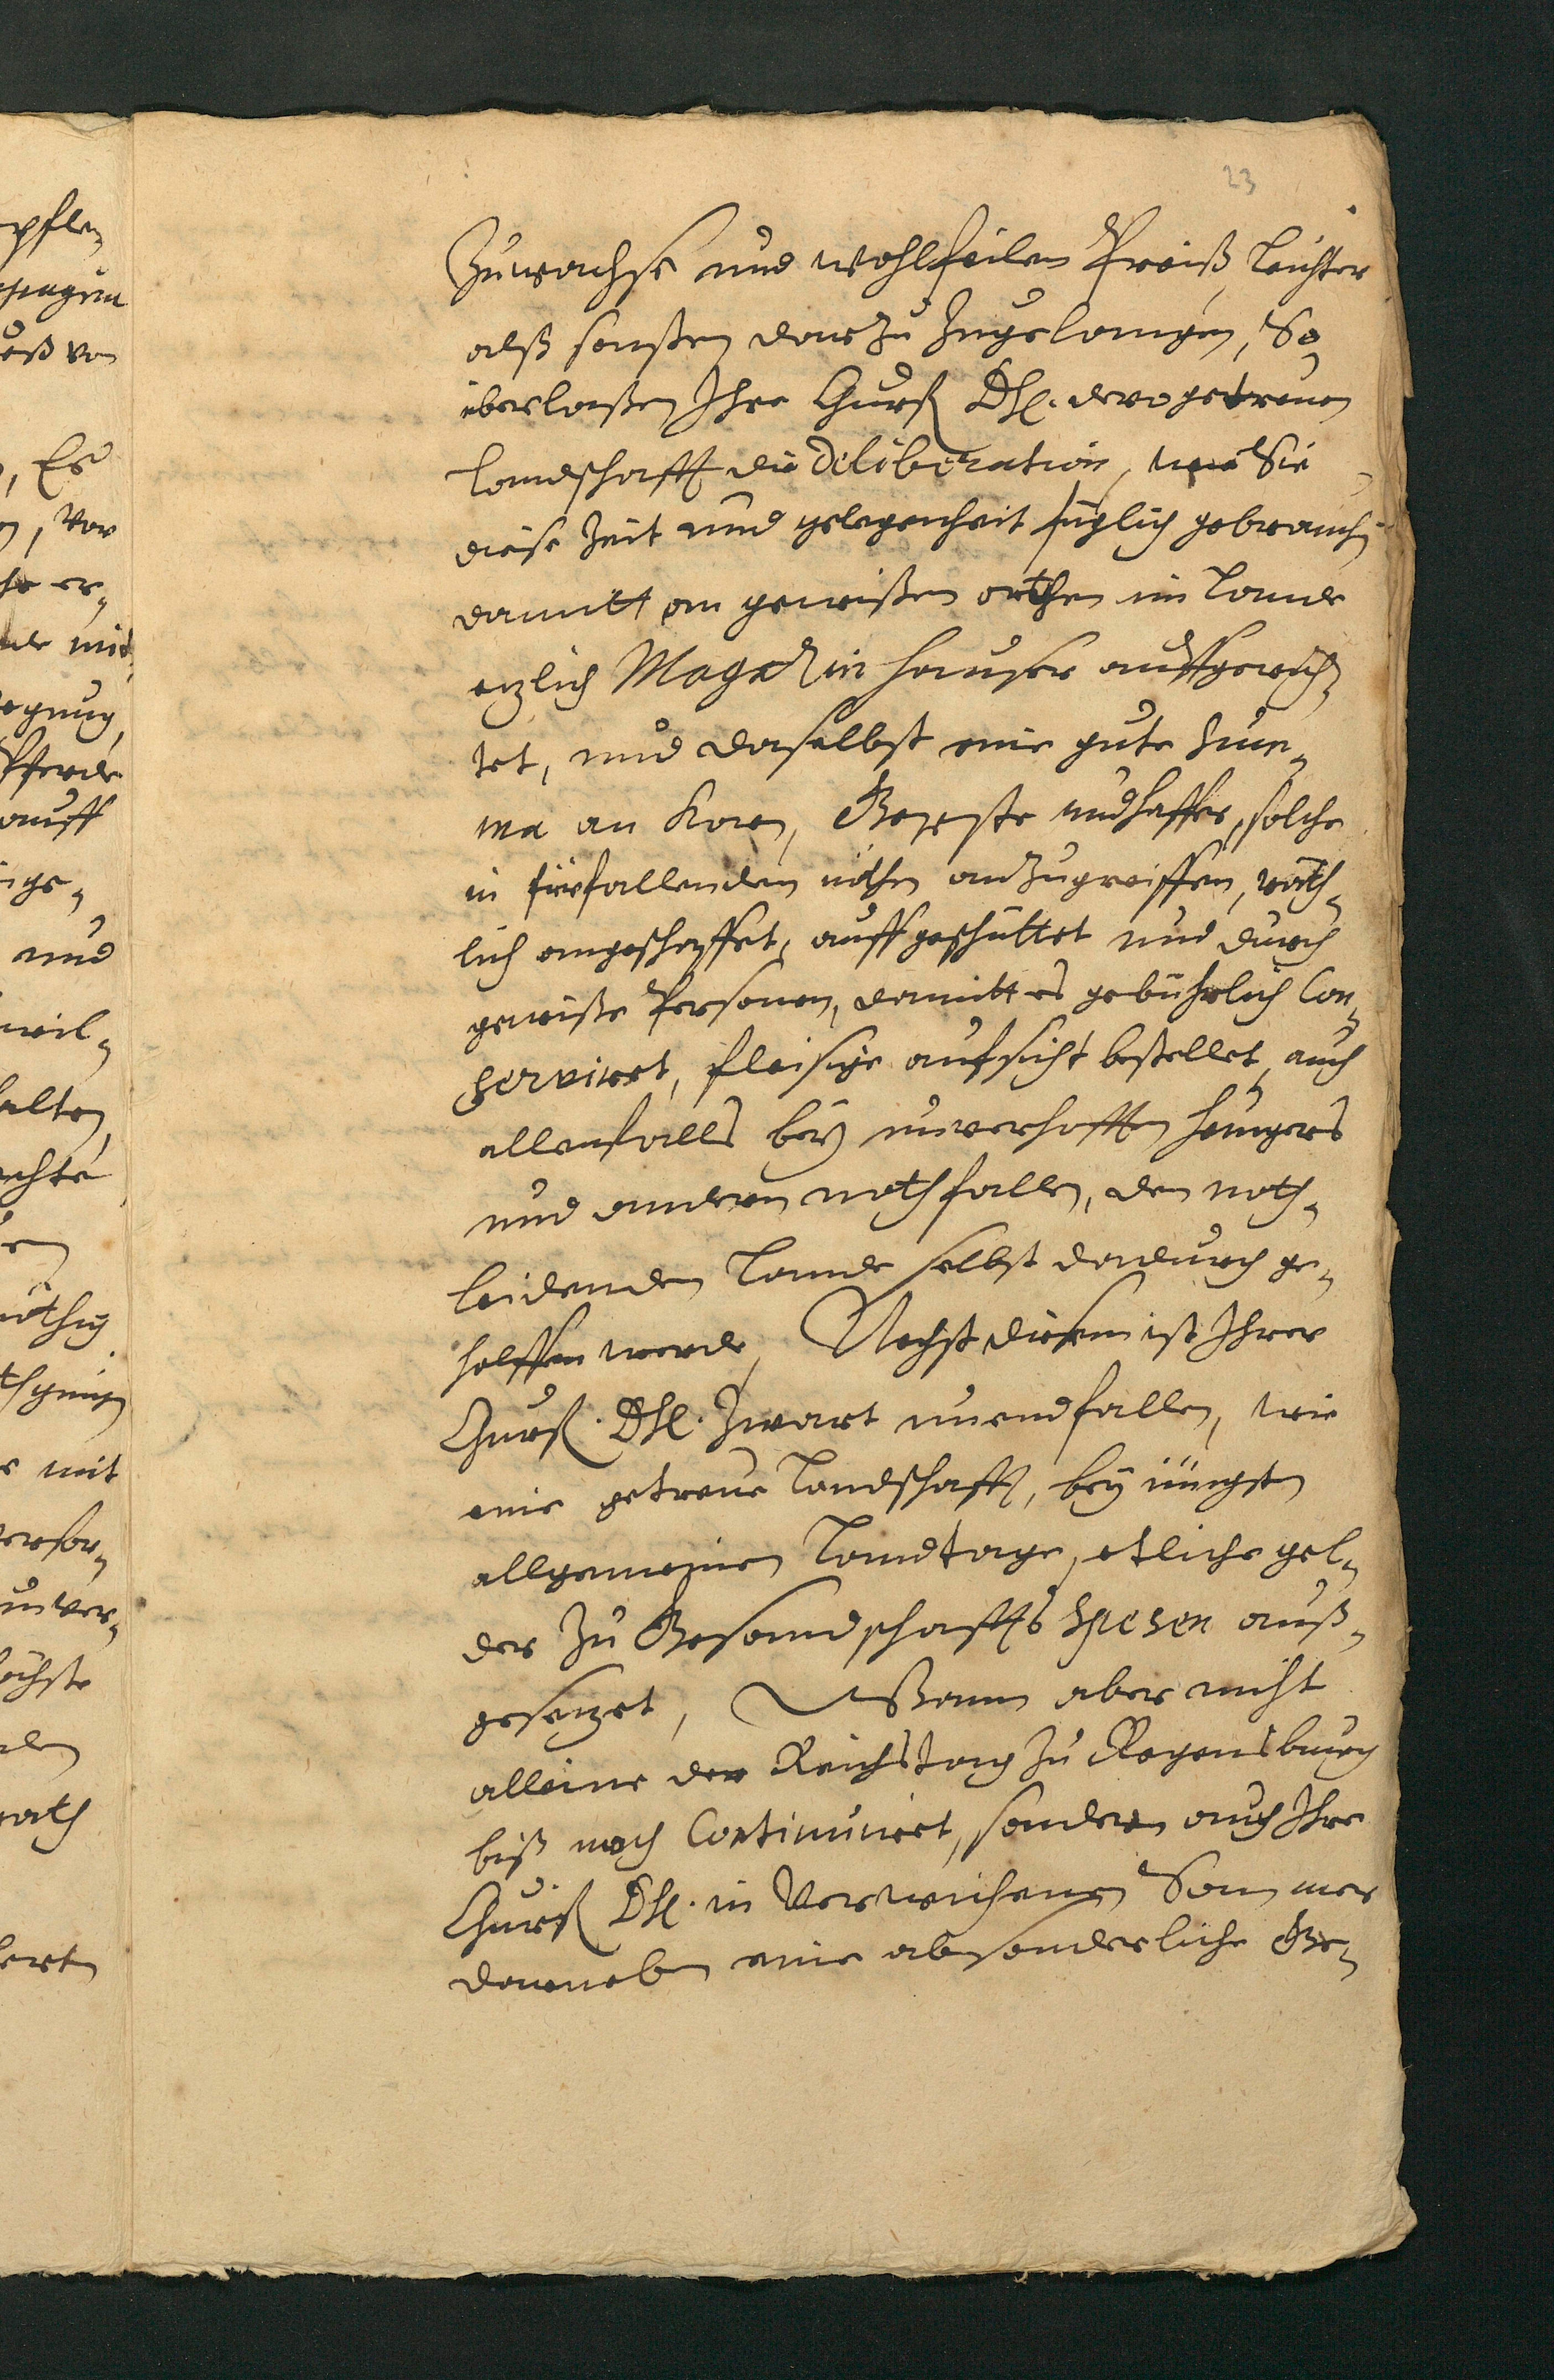 23
Zuwachse und wohlfeilen Preiß, leichter
alß sonsten darzu zugelangen, So
überlaßen Ihre Churf. Dhl. dero getreuen
Landschafft die Deliberation, wie Sie
diese Zeit und gelegenheit füglich gebrauchen
damitt an gewißen orthen im Lande
etzlich Magazin häuser auffgerich-
tet, und daselbst eine gute Sum-
ma an Korn, Gerste und Haffer, solche
in fürfallenden nöthen anzugreiffen, räth-
lich angeschaffet, auffgeschüttet und durch
gewiße Personen, damitt es gebührlich Con-
serviret, fleisige aufsicht bestellet, auch
allenfalls bey unverhofften hungers
und andern nothfallen, dem noth-
leidenden Lande selbst dadurch ge-
holffen werde, Nechst diesem ist Ihrer
Churf. Dhl. zwart unendfallen, wie
eine getreue Landschafft, bey jüngsten
allgemeinen Landtage, etliche gel-
der zu Gesandschaffts Spesen auß-
gesetzet, Wann aber nicht
alleine der Reichstag zu Regensburg
biß noch Continuiret, sondern auch Ihre
Churf. Dhl. in Verwichenen Sommer
darneben eine absonderliche Ge-
pflen
, Es
, Vor
er-
und
mit